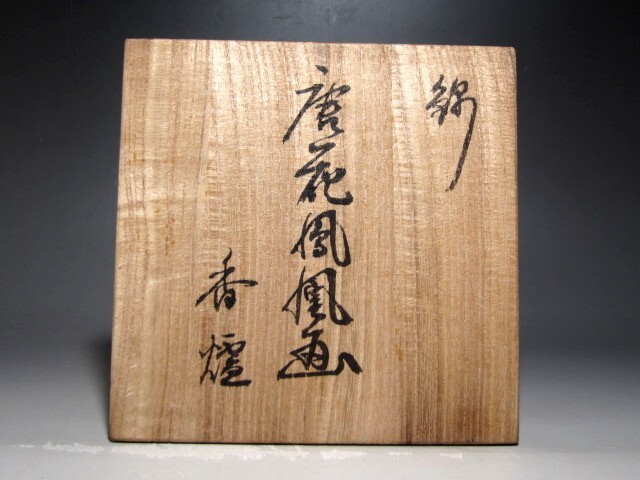 錦
唐花鳳凰画
香爐